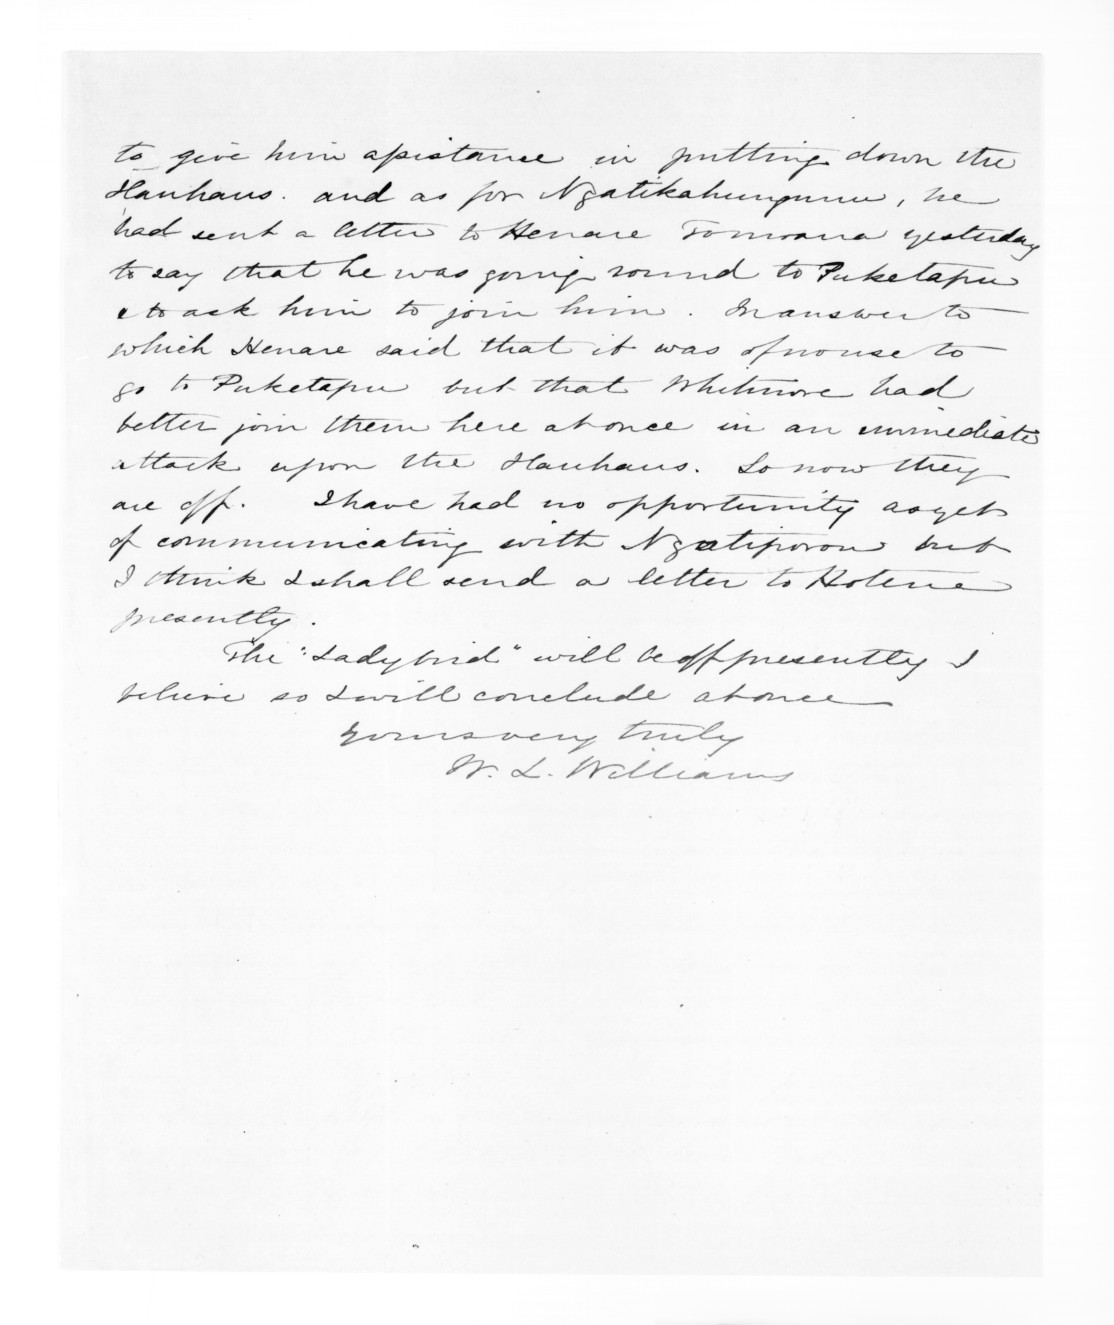 to give him assistance in putting down the
Hauhaus. and as for Ngatikahungunu, he
had sent a letter to Henare Tomoana yesterday
to say that he was going round to Puketapu
& to ask him to join him. In answer to
which Henare said that it was of no use to
go to Puketapu but that Whitmore had
better join them here at once in an immediate
attack upon the Hauhaus. So now they
are off. I have had no opportunity as yet
of communicating with Ngatiporou but
I think I shall send a letter to Hotene
presently.
The "Ladybird" will be off presently I
believe so I will conclude at once
Yours very truly
W. L. Williams